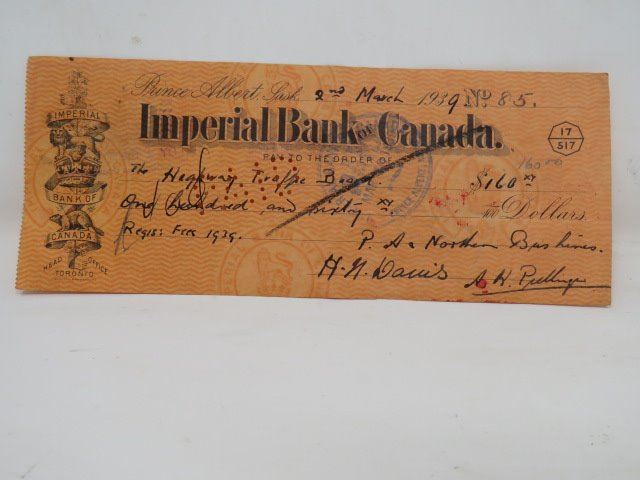 Prince Albert, Sask. 2nd March 1939 No. 85.
Imperial Bank of Canada.
PAY TO THE ORDER OF
17
517
160.00
The Highway Traffic Board $160 xx
One hundred and sixty xx/100 Dollars.
Regis: Fees 1939.
P. A. & Northern Bus Lines.
H. N. Davis
IMPERIAL
BANK OF
CANADA
HEAD OFFICE
TORONTO